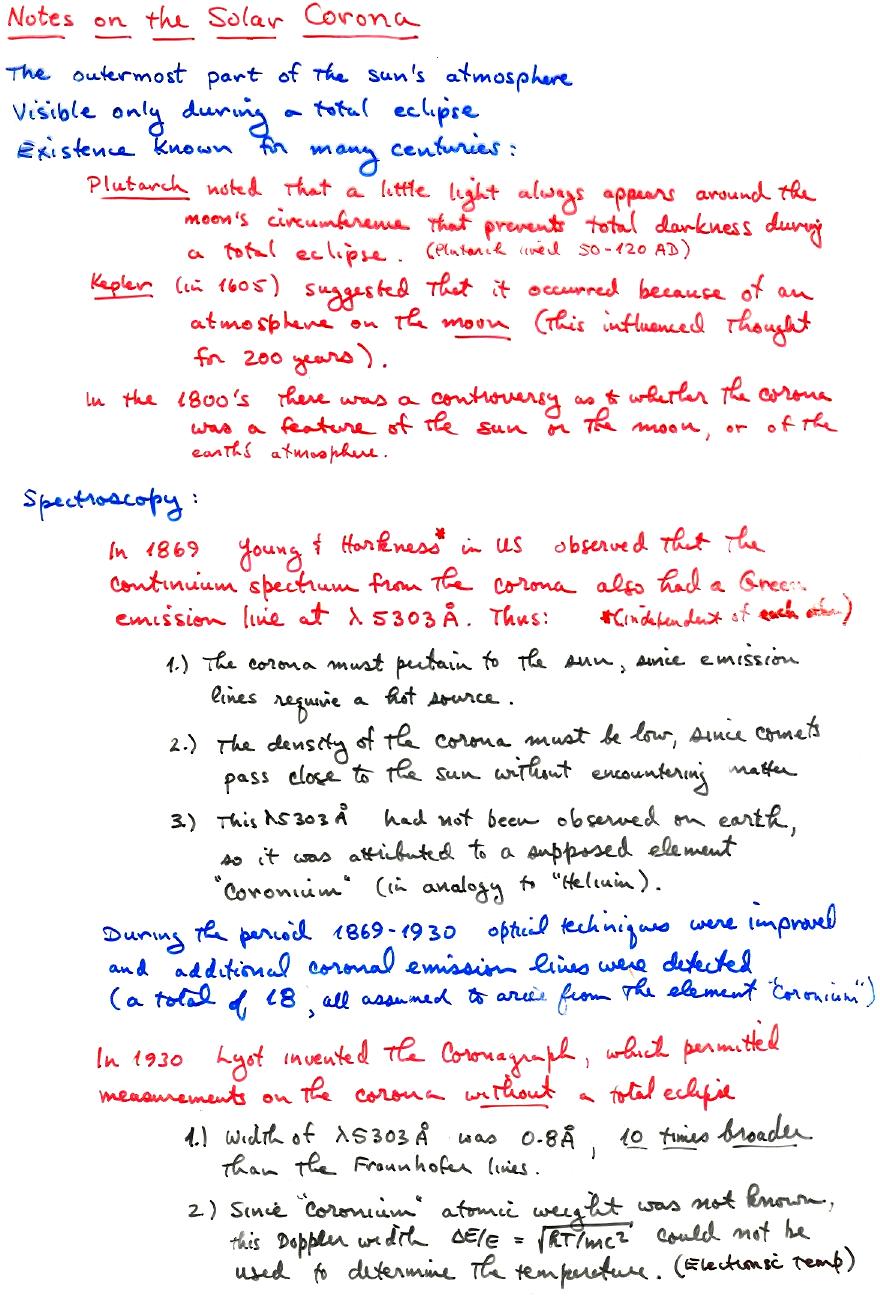 Notes on the Solar Corona
The outermost part of the sun's atmosphere
Visible only during a total eclipse
Existence known for many centuries:
Plutarch noted that a little light always appears around the
moon's circumference that prevents total darkness during
a total eclipse. (Plutarch lived 50-120 AD)
Kepler (in 1605) suggested that it occurred because of an
atmosphere on the moon (this influenced thought
for 200 years).
In the 1800's there was a controversy as to whether the corona
was a feature of the sun or the moon, or of the
earth's atmosphere.
Spectroscopy:
In 1869 Young & Harkness* in US observed that the
continuum spectrum from the corona also had a Green
emission line at λ 5303 Å. Thus: *(independent of each other)
1.) The corona must pertain to the sun, since emission
lines require a hot source.
2.) The density of the corona must be low, since comets
pass close to the sun without encountering matter
3.) This λ5303 Å had not been observed on earth,
so it was attributed to a supposed element
"Coronium" (in analogy to "Helium").
During the period 1869-1930 optical techniques were improved
and additional coronal emission lines were detected
(a total of 18, all assumed to arise from the element "Coronium")
In 1930 Lyot invented the Coronagraph, which permitted
measurements on the corona without a total eclipse
1.) Width of λ5303 Å was 0.8 Å, 10 times broader
than the Fraunhofer lines.
2.) Since "Coronium" atomic weight was not known,
this Doppler width ΔE/E = √kT/mc² could not be
used to determine the temperature. (Electronic Temp)